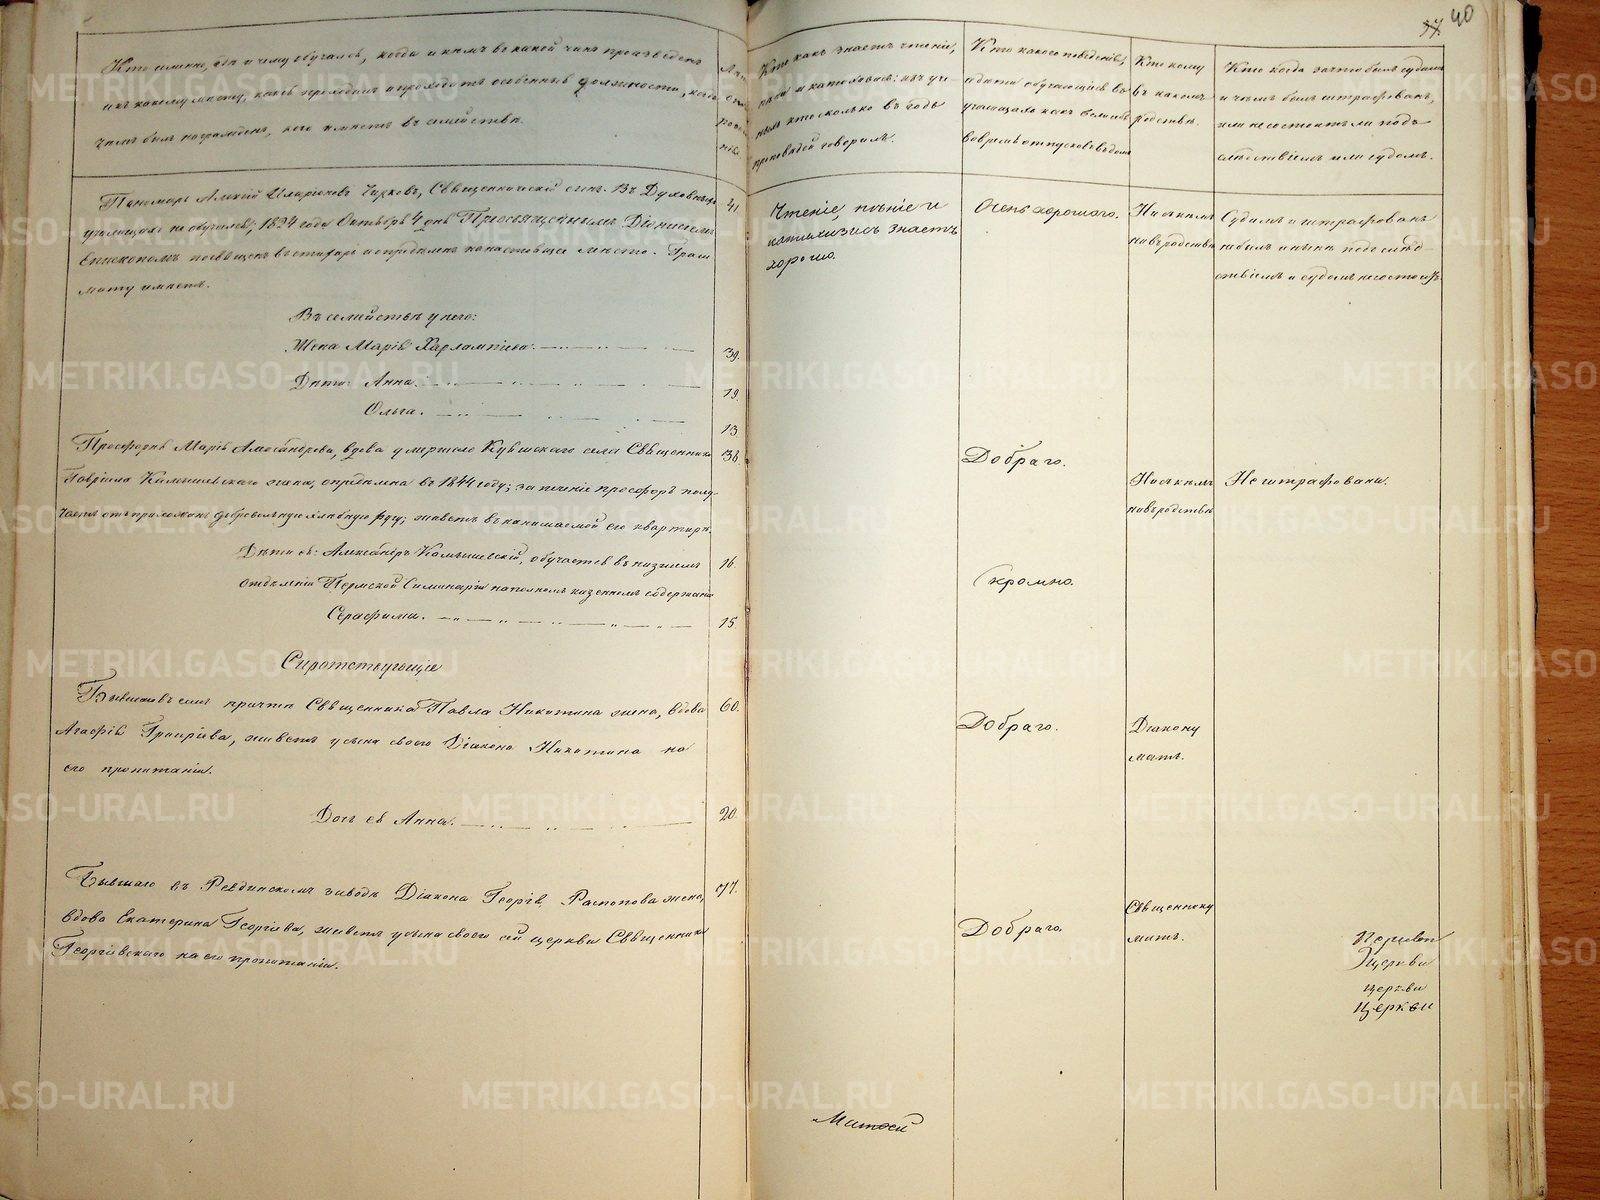 40
Кто именно, гдѣ и чему обучался, когда и кѣмъ въ какой чинъ произведенъ
и къ какому мѣсту, какія проходилъ и проходитъ особенныя должности, когда
чѣмъ былъ награжденъ, кого имѣетъ въ семействѣ.
Кто какъ знаетъ чтеніе,
пѣніе и катихизисъ: изъ уче-
ныхъ кто сколько въ годъ
проповѣдей говорилъ.
Кто какого поведенія,
а дѣти обучающіяся въ
училищахъ какъ вели себя
во время отпусковъ въ домы
Кто кому
въ какомъ
родствѣ.
Кто когда за что былъ судимъ
и чѣмъ былъ штрафованъ,
или не состоитъ ли подъ
слѣдствіемъ или судомъ.
Пономарь Алексій Иларіоновъ Чирковъ, Священническій сынъ. Въ Духовныхъ
училищахъ не обучался; 1824 года Октября 4 дня Преосвященнымъ Діонисіемъ
Епископомъ посвященъ въ стихарь и опредѣленъ на настоящее мѣсто. Грам
мату имѣетъ.
41.
Чтеніе, пѣніе и
катихизисъ знаетъ
хорошо.
Очень хорошаго.
Ни съ кѣмъ
не въ родствѣ
Судимъ и штрафованъ
не былъ и нынѣ подъ слѣд-
ствіемъ и судомъ не состоитъ.
Въ семействѣ у него:
Жена Марія Харлампіева. 39.
Дѣти: Анна. 19.
Ольга. 13.
Просфорня Марія Александрова, вдова умершаго Кувшскаго села Священника 38.
Гавріила Камышевскаго жена, опредѣлена въ 1844 году; за печеніе просфоръ полу-
чаетъ отъ прихожанъ добровольную хлѣбную ругу; живетъ въ нанимаемой ею квартирѣ.
Добраго.
Ни съ кѣмъ
не въ родствѣ
Не штрафована.
Дѣти ея: Александръ Камышевскій, обучается въ низшемъ 16.
отдѣленіи Пермской Семинаріи на полномъ казенномъ содержаніи
Серафима. 15.
Скромно.
Сиротствующіе
Бывшаго въ семъ причтѣ Священника Павла Никитина жена, вдова 60.
Агафія Григріева, живетъ у сына своего Діакона Никитина на
его пропитаніи.
Добраго.
Діакону
мать.
Дочь ея Анна. 20.
Бывшаго въ Ревдинскомъ заводѣ Діакона Георгія Распопова жена, 77.
вдова Екатерина Георгіева, живетъ у сына своего сей церкви Священника
Георгіевскаго на его пропитаніи.
Добраго.
Священнику
мать.
церкви
церкви
Церкви
Матѳей